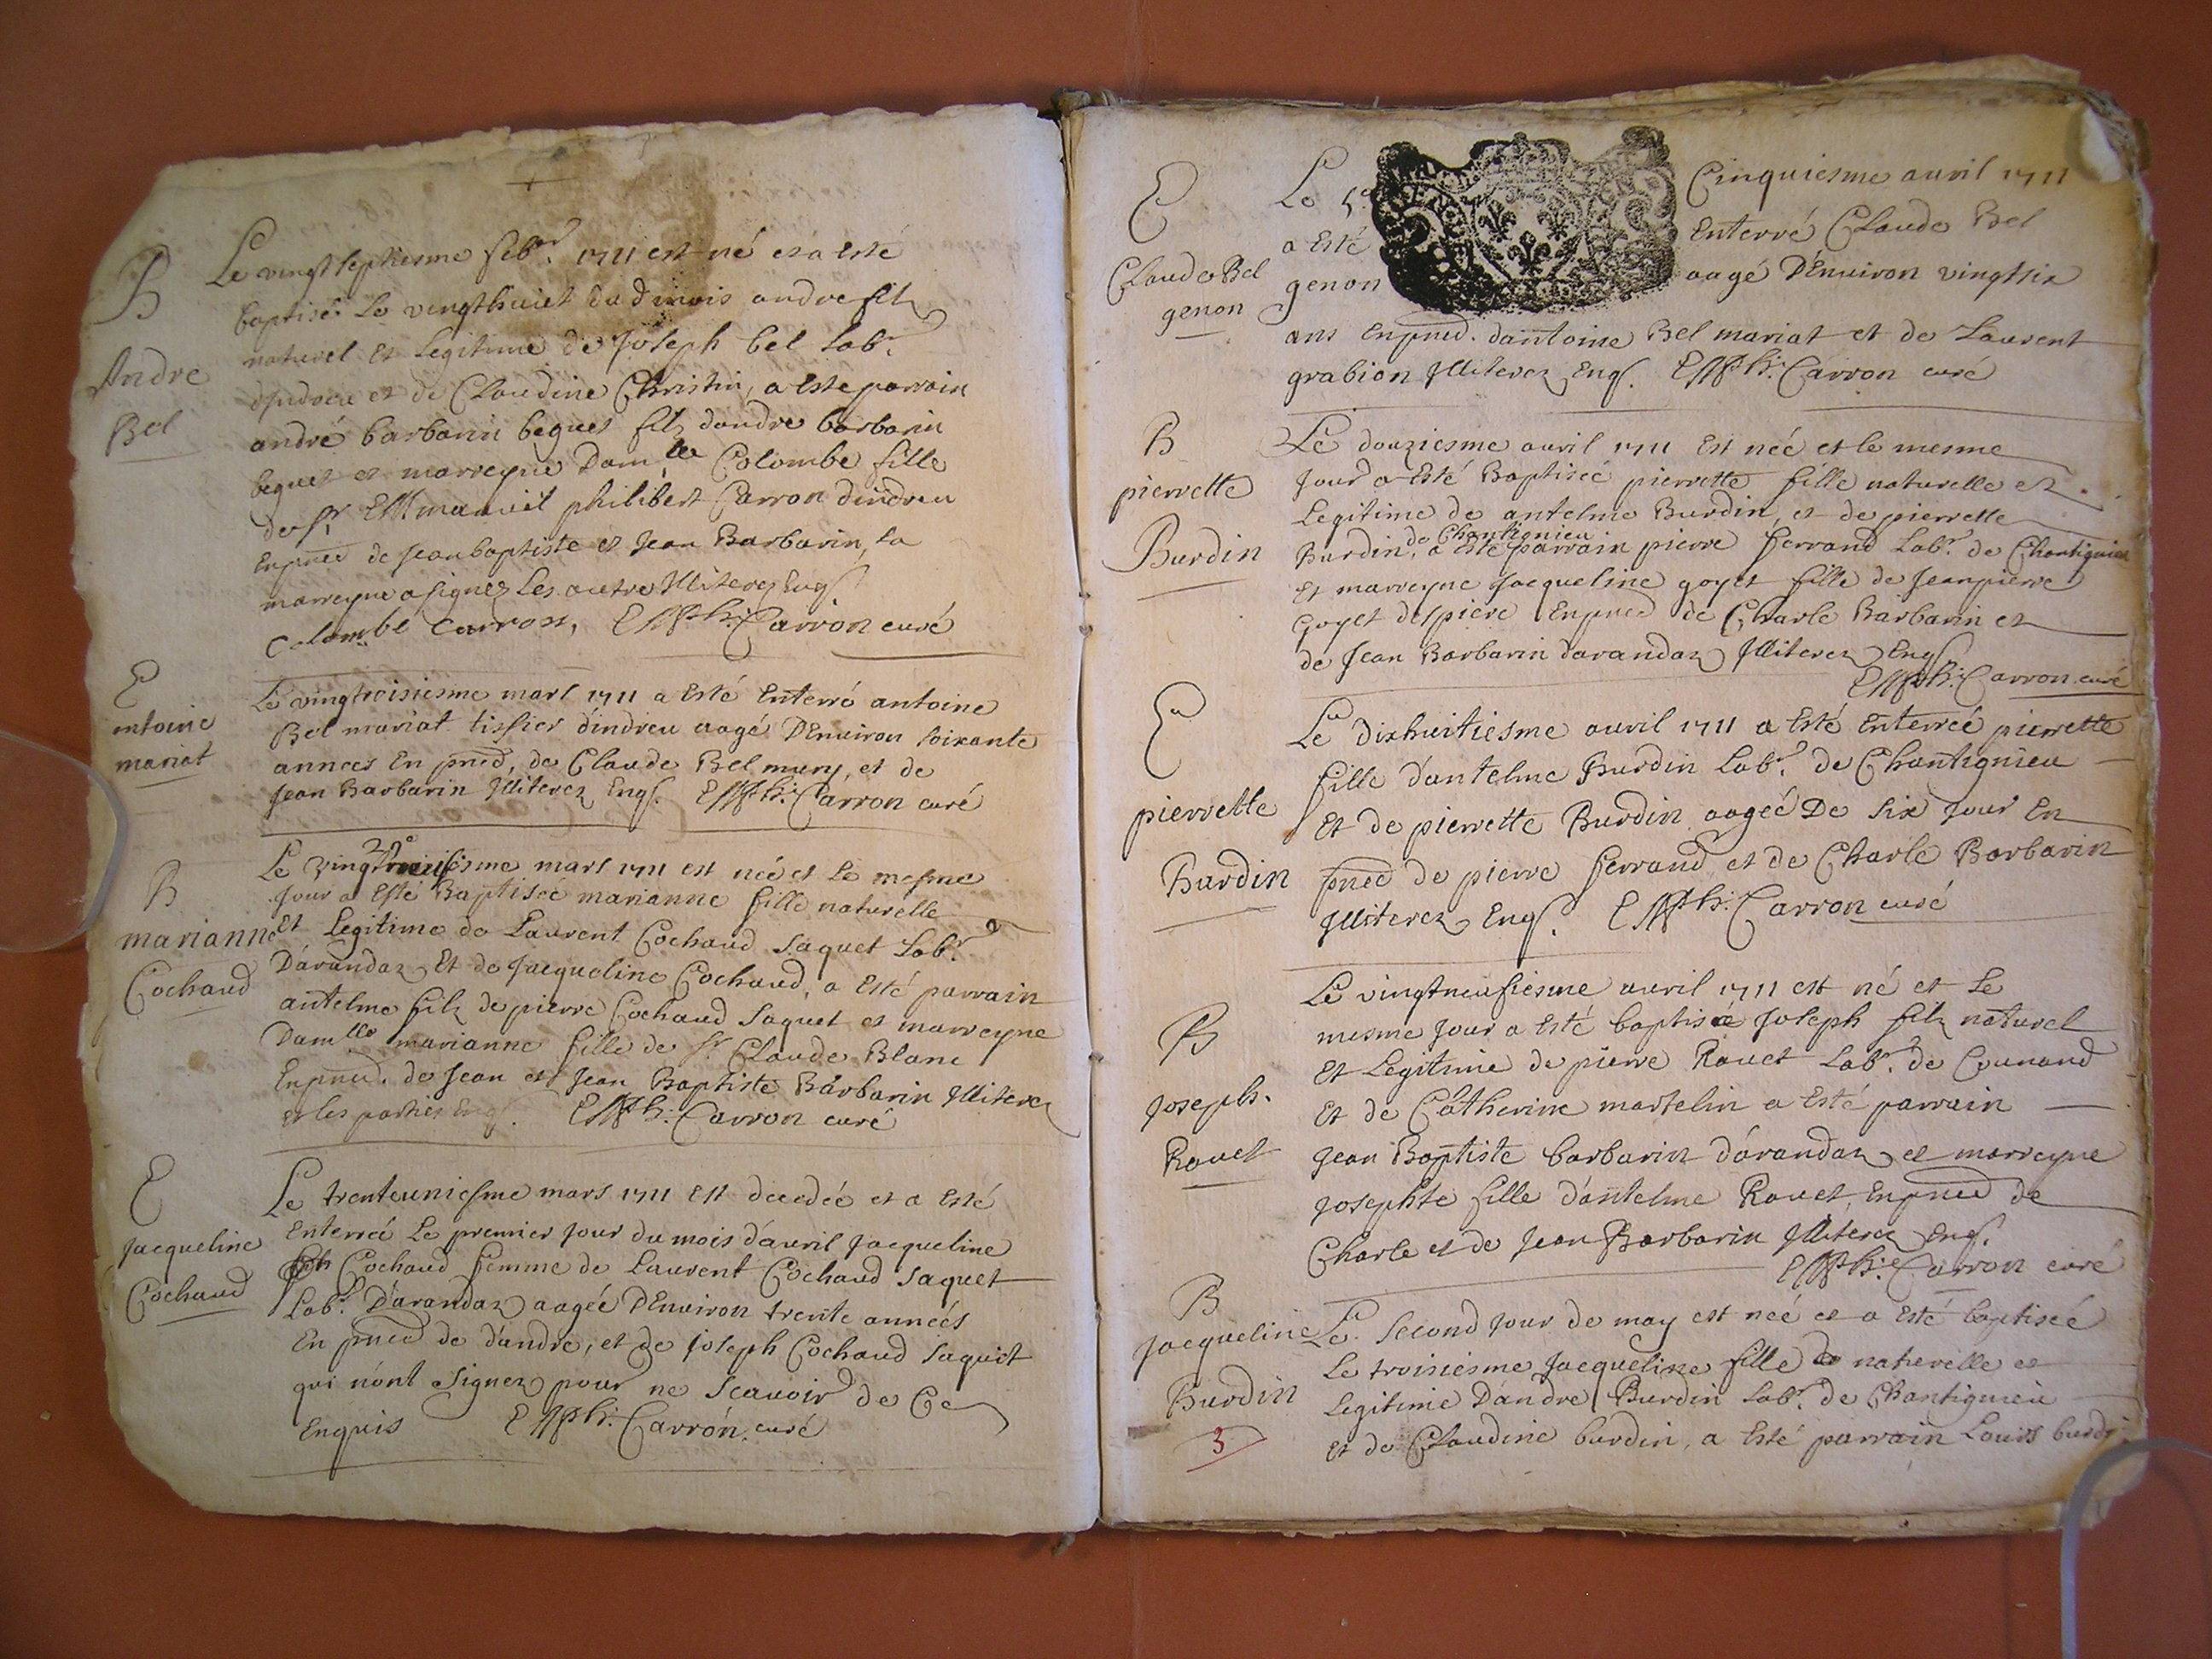 B
Andre
Bel
Le vingtseptiesme febr. 1711 est né et a esté
baptisé Le vingthuict dud mois andre filz
naturel et Legitime de Joseph bel Labr.
d'Indrieu et de Claudine Christin, a esté parrain
andré barbarin beguet filz dandre barbarin
beguet et marreyne Damlle Colombe fille
de Sr. EMmanuel philibert Carron dindrieu
En pnce de Jean baptiste et Jean Barbarin, la
marreyne a signez Les autre Illiterez Enqs
Colombe Carron, EMPh: Carron curé
E
antoine
mariat
Le vingtroisiesme mars 1711 a Esté Enterré antoine
Bel mariat tissier d'indrieu aagé D'Environ soixante
annees En pnce, de Claude Bel mury, et de
Jean Barbarin Illiterez Enqs. EMPh: Carron curé
B
marianne
Cochaud
Le mars 1711 est neé et Le mesme
Jour a Esté Baptiseé marianne fille naturelle
Et Legitime de Laurent Cochaud Saquet Labr.
D'arandaz Et de Jacqueline Cochaud, a Esté parrain
antelme filz de pierre Cochaud Saquet et marreyne
Damlle marianne fille de Sr Claude Blanc
En pnce. de Jean et Jean Baptiste Barbarin Illiterez
et les parties Enqs. EMPh: Carron curé
E
Jacqueline
Cochaud
Le trenteuniesme mars 1711 est decedeé et a Esté
Enterreé Le premier Jour du mois d'auril Jacqueline
Cochaud femme de Laurent Cochaud Saquet
Labr. D'arandaz aageé D'Environ trente années
En pnce de d'andre, et de Joseph Cochaud Saquet
qui n'ont signez pour ne Scauoir de Ce
Enquis EMPh: Carron, curé
E
Claude Bel
genon
Le 5e Cinquiesme auril 1711
a Esté Enterré Claude Bel
genon aagé D'Enuiron vingtsix
ans En pnce. dantoine Bel mariat et de Laurent
grabion Illiterez Enqs. EMPh: Carron curé
B
pierrette
Burdin
Le douziesme auril 1711 Est neé et le mesme
Jour a Esté Baptiseé pierrette fille naturelle et
Legitime de antelme Burdin, et de pierrette
de Chantignieu
Burdin, a Esté parrain pierre ferrand Labr. de Chantignieu
Et marreyne Jacqueline goyet fille de Jeanpierre
goyet despiere En pnce de Charle Barbarin et
de Jean Barbarin d'arandaz Illiterez Enqs
EMPh: Carron curé
E
pierrette
Burdin
Le dixhuitiesme auril 1711 a Esté Enterreé pierrette
fille d'antelme Burdin Labr. de Chantignieu
Et de pierrette Burdin aageé De six Jour En
pnce de pierre ferrand et de Charle Barbarin
Illiterez Enqs. EMPh: Carron curé
B
Joseph.
Rouet
Le vingtneufiesme auril 1711 est né et Le
mesme Jour a Esté baptisé Joseph filz naturel
Et Legitime de pierre Rouet Labr. de Counand
Et de Catherine martelin a Esté parrain
Jean Baptiste barbarin d'arandaz et marreyne
Josephte fille d'antelme Rouet, En pnce de
Charle et de Jean Barbarin Illiterez Enqs.
EMPh: Carron curé
B
Jacqueline
Burdin
3
Le Second Jour de may est neé et a Esté baptiseé
Le troisiesme Jacqueline fille naturelle et
Legitime D'andre Burdin Labr. de Chantignieu
Et de Claudine burdin, a Esté parrain Louis